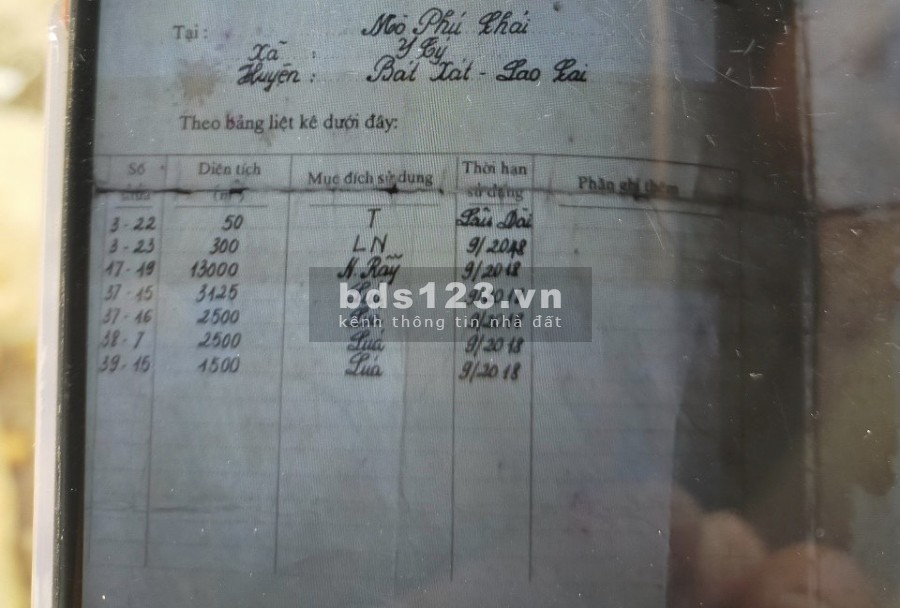 Tại : Mò Phú Chải
Xã : Y Tý
Huyện : Bát Xát - Lao Cai
Theo bảng liệt kê dưới đây:
Số thửa Diện tích (m²) Mục đích sử dụng Thời hạn sử dụng Phần ghi thêm
3 - 22 50 T Lâu Dài
3 - 23 300 LN 9/2048
17 - 19 13000 N. Rẫy 9/2018
37 - 15 3125 9/2018
37 - 16 2500 9/2018
38 - 7 2500 Lúa 9/2018
39 - 15 1500 Lúa 9/2018
bds123.vn
kênh thông tin nhà đất